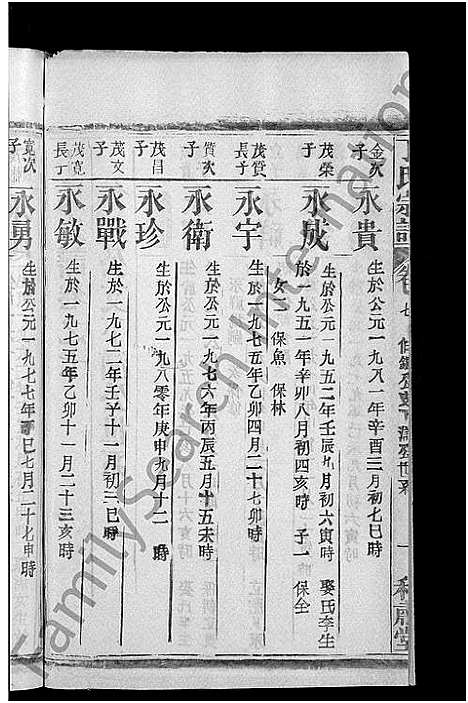 丁氏宗譜 卷七
金次子 永貴 生於公元一九八一年辛酉二月初七巳時
茂榮子 永成 生於公元一九五二年壬辰九月初六寅時 娶氏李生
於一九五一年辛卯八月初四亥時 子一 保全
女二 保魚 保林
茂質長子 永宇 生於公元一九七五年乙卯四月二十七卯時
質次子 永衛 生於公元一九七六年丙辰五月十五未時
茂昌子 永珍 生於公元一九八零年庚申九月十二 時
茂文子 永戰 生於公元一九七二年壬子十一月初三巳時
茂寬長丁 永敏 生於公元一九七五年乙卯十一月二十三亥時
寬次子 永勇 生於公元一九七七年丁巳七月二十七申時
FamilySearch International